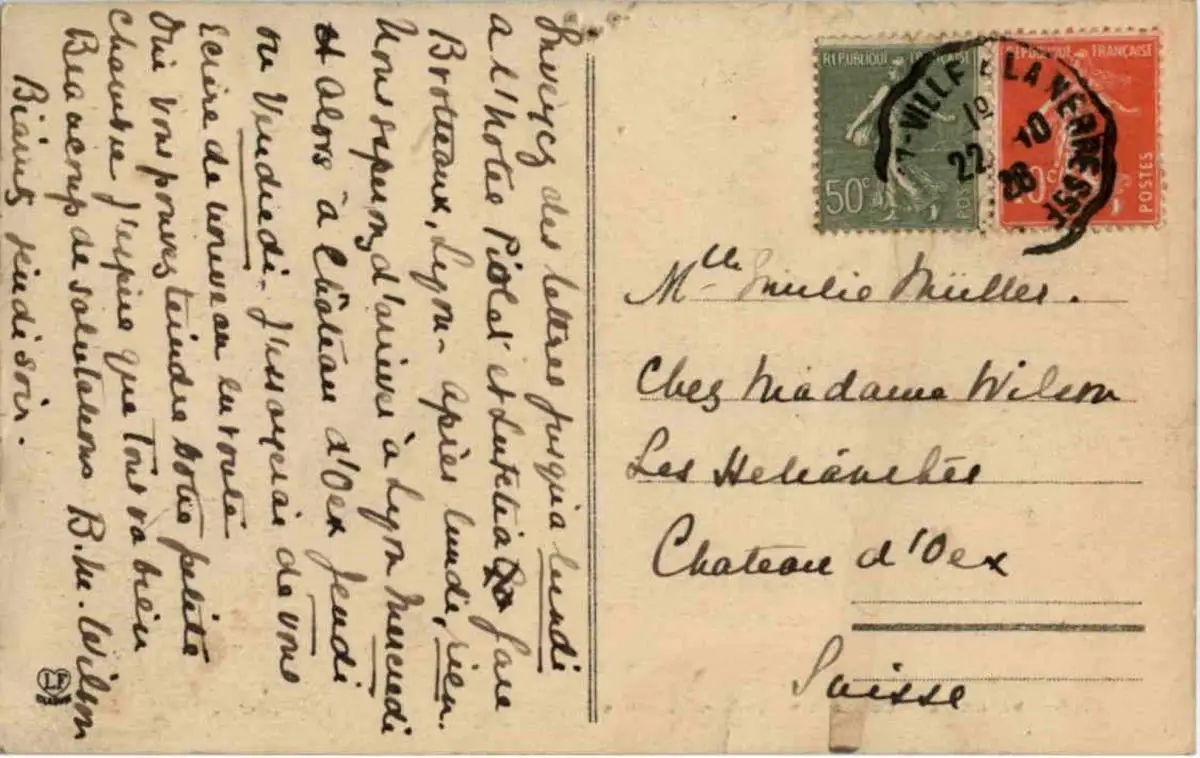 Envoyez des lettres jusqu'a lundi
a l'hotel Piolat et Lutetia Gare
Brotteaux, Lyon - après lundi, rien.
Nous esperons d'arriver à Lyon Mercredi
et alors à Château d'Oex Jeudi
ou Vendredi - J'essayerai de vous
Ecrire de nouveau en route
Oui vous pouvez teindre votre petite
chambre J'espère que tout va bien
Beaucoup de salutations B. M. Wilson
jeudi soir.
REPUBLIQUE FRANÇAISE
50c
POSTES
REPUBLIQUE FRANÇAISE
POSTES
VILLE LA VERRESSE
22 10
28
Mlle Emilie Müller.
Chez Madame Wilson
Les Hélianthes
Chateau d'Oex
Suisse